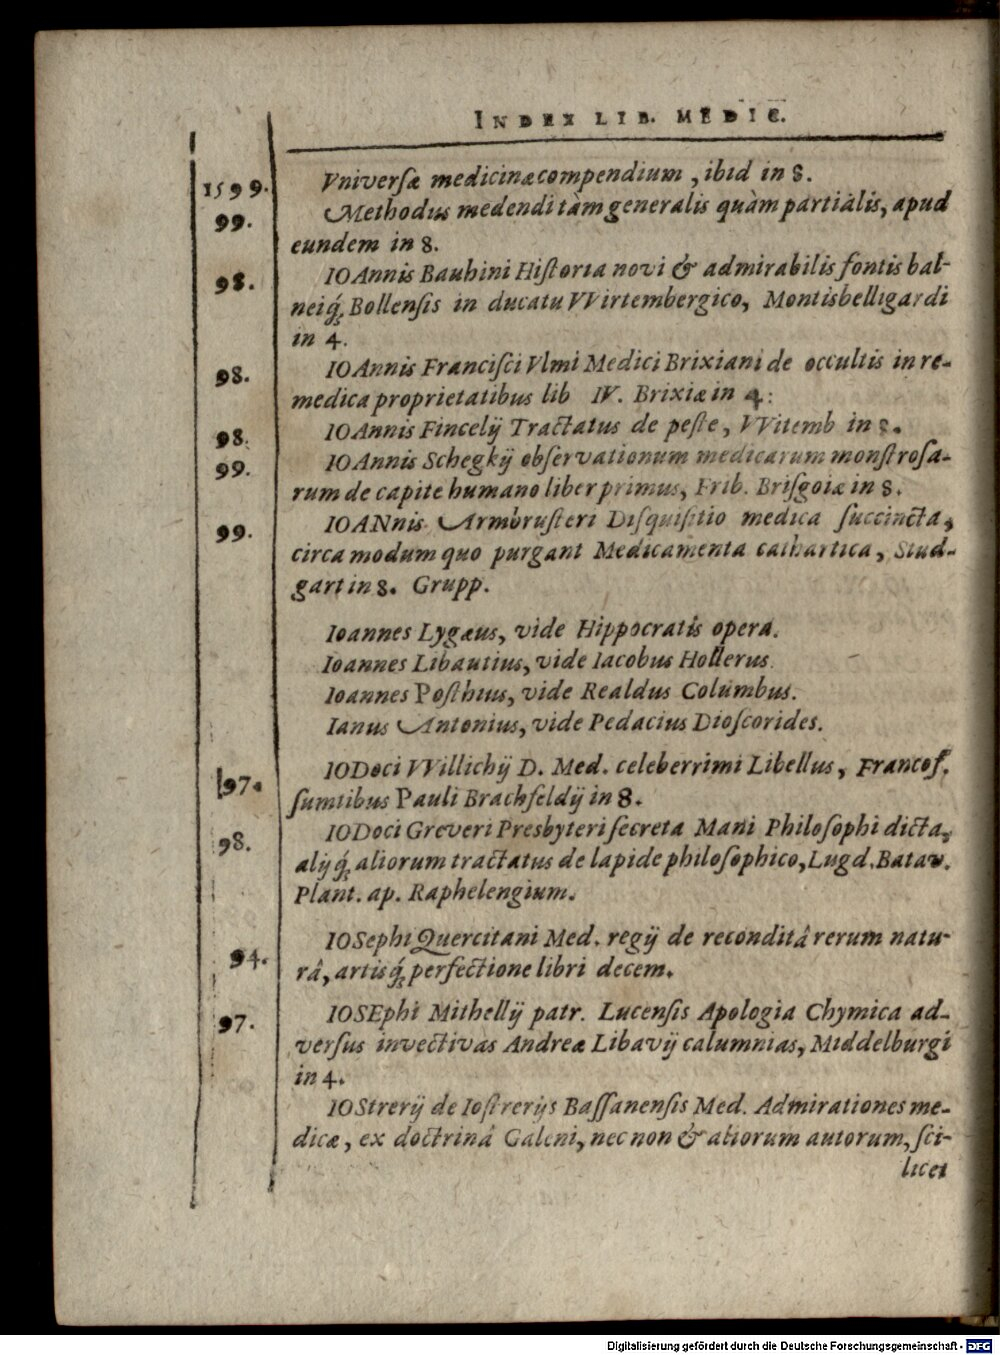 INDEX LIB. MEDIC.
1599. Vniversæ medicinæ compendium, ibid in 8.
99. Methodus medendi tàm generalis quàm partialis, apud
eundem in 8.
98. IOAnnis Bauhini Historia novi & admirabilis fontis bal-
neiq́; Bollensis in ducatu VVirtembergico, Montisbelligardi
in 4.
98. IOAnnis Francisci Vlmi Medici Brixiani de occultis in re-
medica proprietatibus lib IV. Brixiæ in 4:
98. IOAnnis Fincelij Tractatus de peste, VVitemb in 8.
99. IOAnnis Schegkij observationum medicarum monstrosa-
rum de capite humano liber primus, Frib. Brisgoiæ in 8.
99. IOANnis Armbrusteri Disquisitio medica succincta,
circa modum quo purgant Medicamenta cathartica, Stud-
gart in 8. Grupp.
Ioannes Lygæus, vide Hippocratis opera.
Ioannes Libautius, vide Iacobus Hollerus.
Ioannes Posthius, vide Realdus Columbus.
Ianus Antonius, vide Pedacius Dioscorides.
97. IODoci VVillichij D. Med. celeberrimi Libellus, Francof.
sumtibus Pauli Brachfeldij in 8.
98. IODoci Greveri Presbyteri secreta Mani Philosophi dicta,
alijq́; aliorum tractatus de lapide philosophico, Lugd. Batav.
Plant. ap. Raphelengium.
94. IOSephi Quercitani Med. regij de reconditâ rerum natu-
râ, artisq́; perfectione libri decem.
97. IOSEphi Mithellij patr. Lucensis Apologia Chymica ad-
versus invectivas Andreæ Libavij calumnias, Middelburgi
in 4.
IOStrerij de Iostrerijs Bassanensis Med. Admirationes me-
dicæ, ex doctrinâ Galeni, nec non & aliorum autorum, sci-
licet
Digitalisierung gefördert durch die Deutsche Forschungsgemeinschaft - DFG